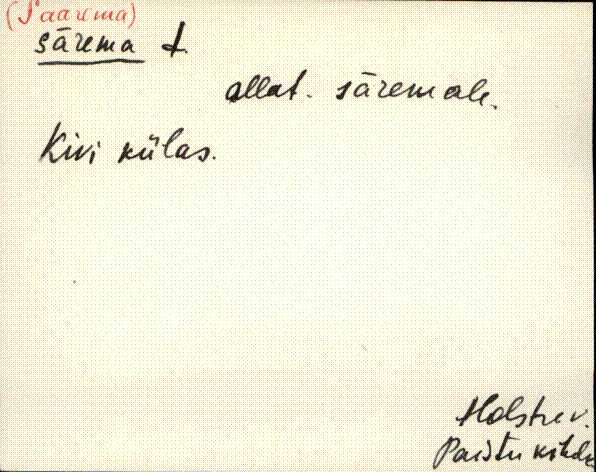 (Saarema)
särema t.
allat. säremale.
Kivi külas.
Holstre v.
Paistu kihelk